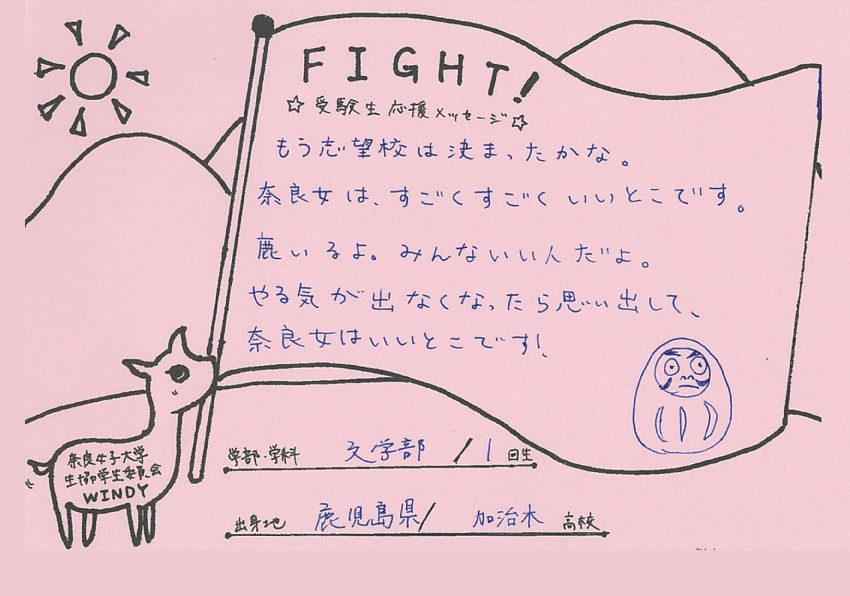 FIGHT!
☆受験生応援メッセージ☆
もう志望校は決まったかな。
奈良女は、すごくすごくいいとこです。
鹿いるよ。みんないい人だよ。
やる気が出なくなったら思い出して、
奈良女はいいとこです!
奈良女子大学
生協学生委員会
WINDY
学部・学科 文学部 / 1 回生
出身地 鹿児島県/ 加治木 高校